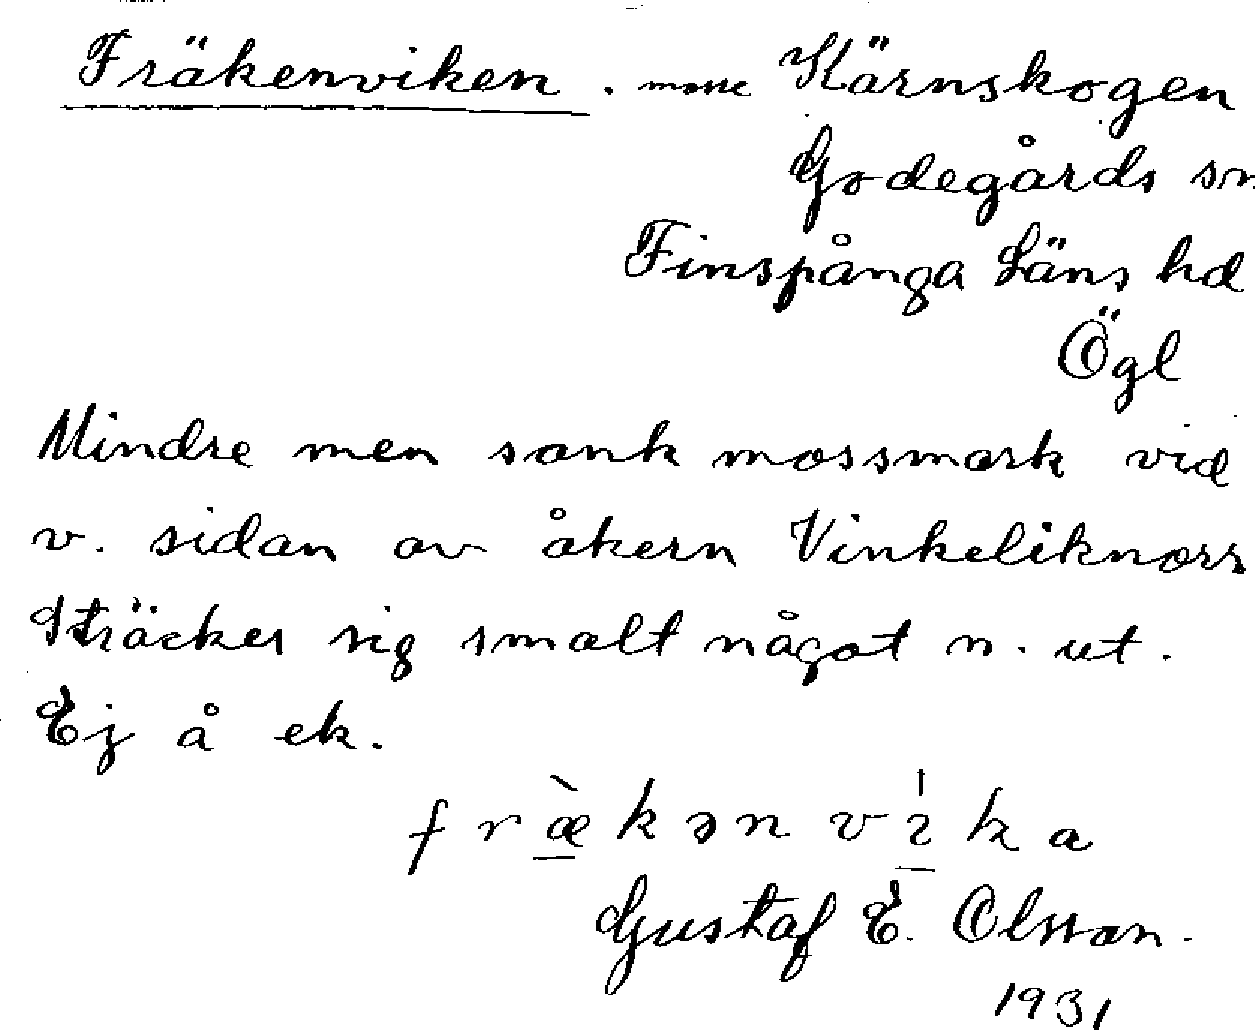 Fräkenviken . mosse Kärnskogen
Godegårds sn
Finspånga Läns hd
Ögl
Mindre men sank mossmark vid
v. sidan av åkern Vinkeliknorr
Sträcker sig smalt något n. ut.
Ej å ek.
fræ̀kənvı̍ka
Gustaf E. Olsson.
1931